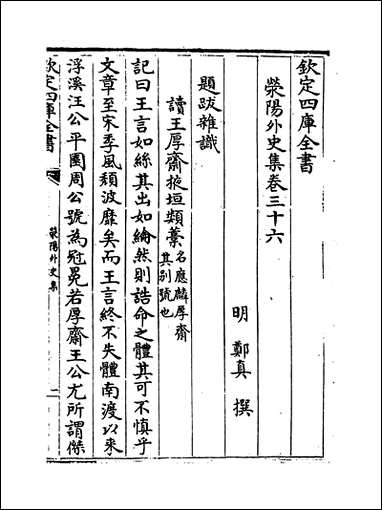 欽定四庫全書
滎陽外史集卷三十六
明 鄭真 撰
題跋雜識
讀王厚齋掖垣類藁名應麟厚齋其別號也
記曰王言如絲其出如綸然則誥命之體其可不慎乎
文章至宋季風頽波靡矣而王言終不失體南渡以来
浮溪汪公平園周公號為冠冕若厚齋王公尤所謂傑
欽定四庫全書
滎陽外史集